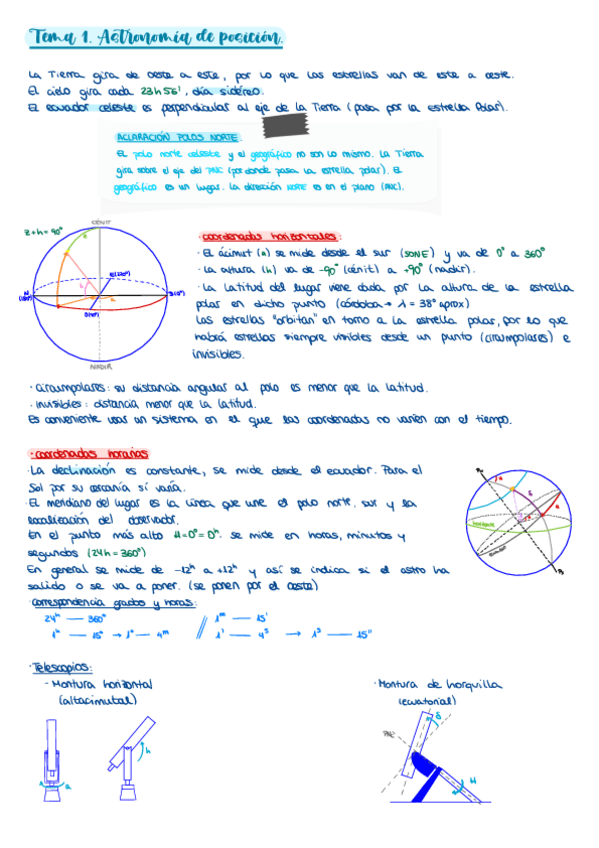 Tema 1. Astronomía de posición.
La Tierra gira de oeste a este, por lo que las estrellas van de este a oeste.
El cielo gira cada 23h 56', día sidéreo.
El ecuador celeste es perpendicular al eje de la Tierra (pasa por la estrella Polar).
ACLARACIÓN POLOS NORTE.
El polo norte celeste y el geográfico no son lo mismo. La Tierra
gira sobre el eje del PNC (por donde pasa la estrella polar). El
geográfico es un lugar. La dirección NORTE es en el plano (PNC).
CÉNIT
z+h=90º
z
h
a
E(270º)
N
(180º)
S(0º)
O(90º)
NADIR
· coordenadas horizontales:
· El ácimut (a) se mide desde el sur (SONE) y va de 0º a 360º
· La altura (h) va de -90º (cénit) a +90º (nadir).
· La latitud del lugar viene dada por la altura de la estrella
polar en dicho punto (córdoba → λ = 38º aprox)
Las estrellas "orbitan" en torno a la estrella polar, por lo que
habrá estrellas siempre visibles desde un punto (circumpolares) e
invisibles.
· circumpolares: su distancia angular al polo es menor que la latitud.
· invisibles: distancia menor que la latitud.
Es conveniente usar un sistema en el que las coordenadas no varíen con el tiempo.
· coordenadas horarias
· La declinación es constante, se mide desde el ecuador. Para el
Sol por su cercanía sí varía.
· El meridiano del lugar es la línea que une el polo norte, sur y la
localización del observador.
En el punto más alto H=0º=0h. se mide en horas, minutos y
segundos (24h=360º)
En general se mide de -12h a +12h y así se indica si el astro ha
salido o se va a poner. (se ponen por el oeste)
Horizonte
Ecuador
· correspondencia grados y horas:
24h — 360º
1m — 15'
1h — 15º → 1º — 4m
1' — 4s → 1s — 15"
· Telescopios:
- Montura horizontal
(altacimutal)
· Montura de horquilla
(ecuatorial)
a
h
PNC
δ
H